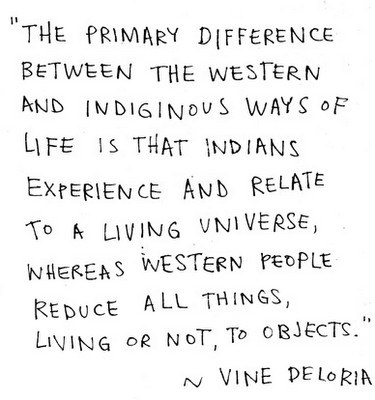 "THE PRIMARY DIFFERENCE
BETWEEN THE WESTERN
AND INDIGINOUS WAYS OF
LIFE IS THAT INDIANS
EXPERIENCE AND RELATE
TO A LIVING UNIVERSE,
WHEREAS WESTERN PEOPLE
REDUCE ALL THINGS,
LIVING OR NOT, TO OBJECTS."
~ VINE DELORIA